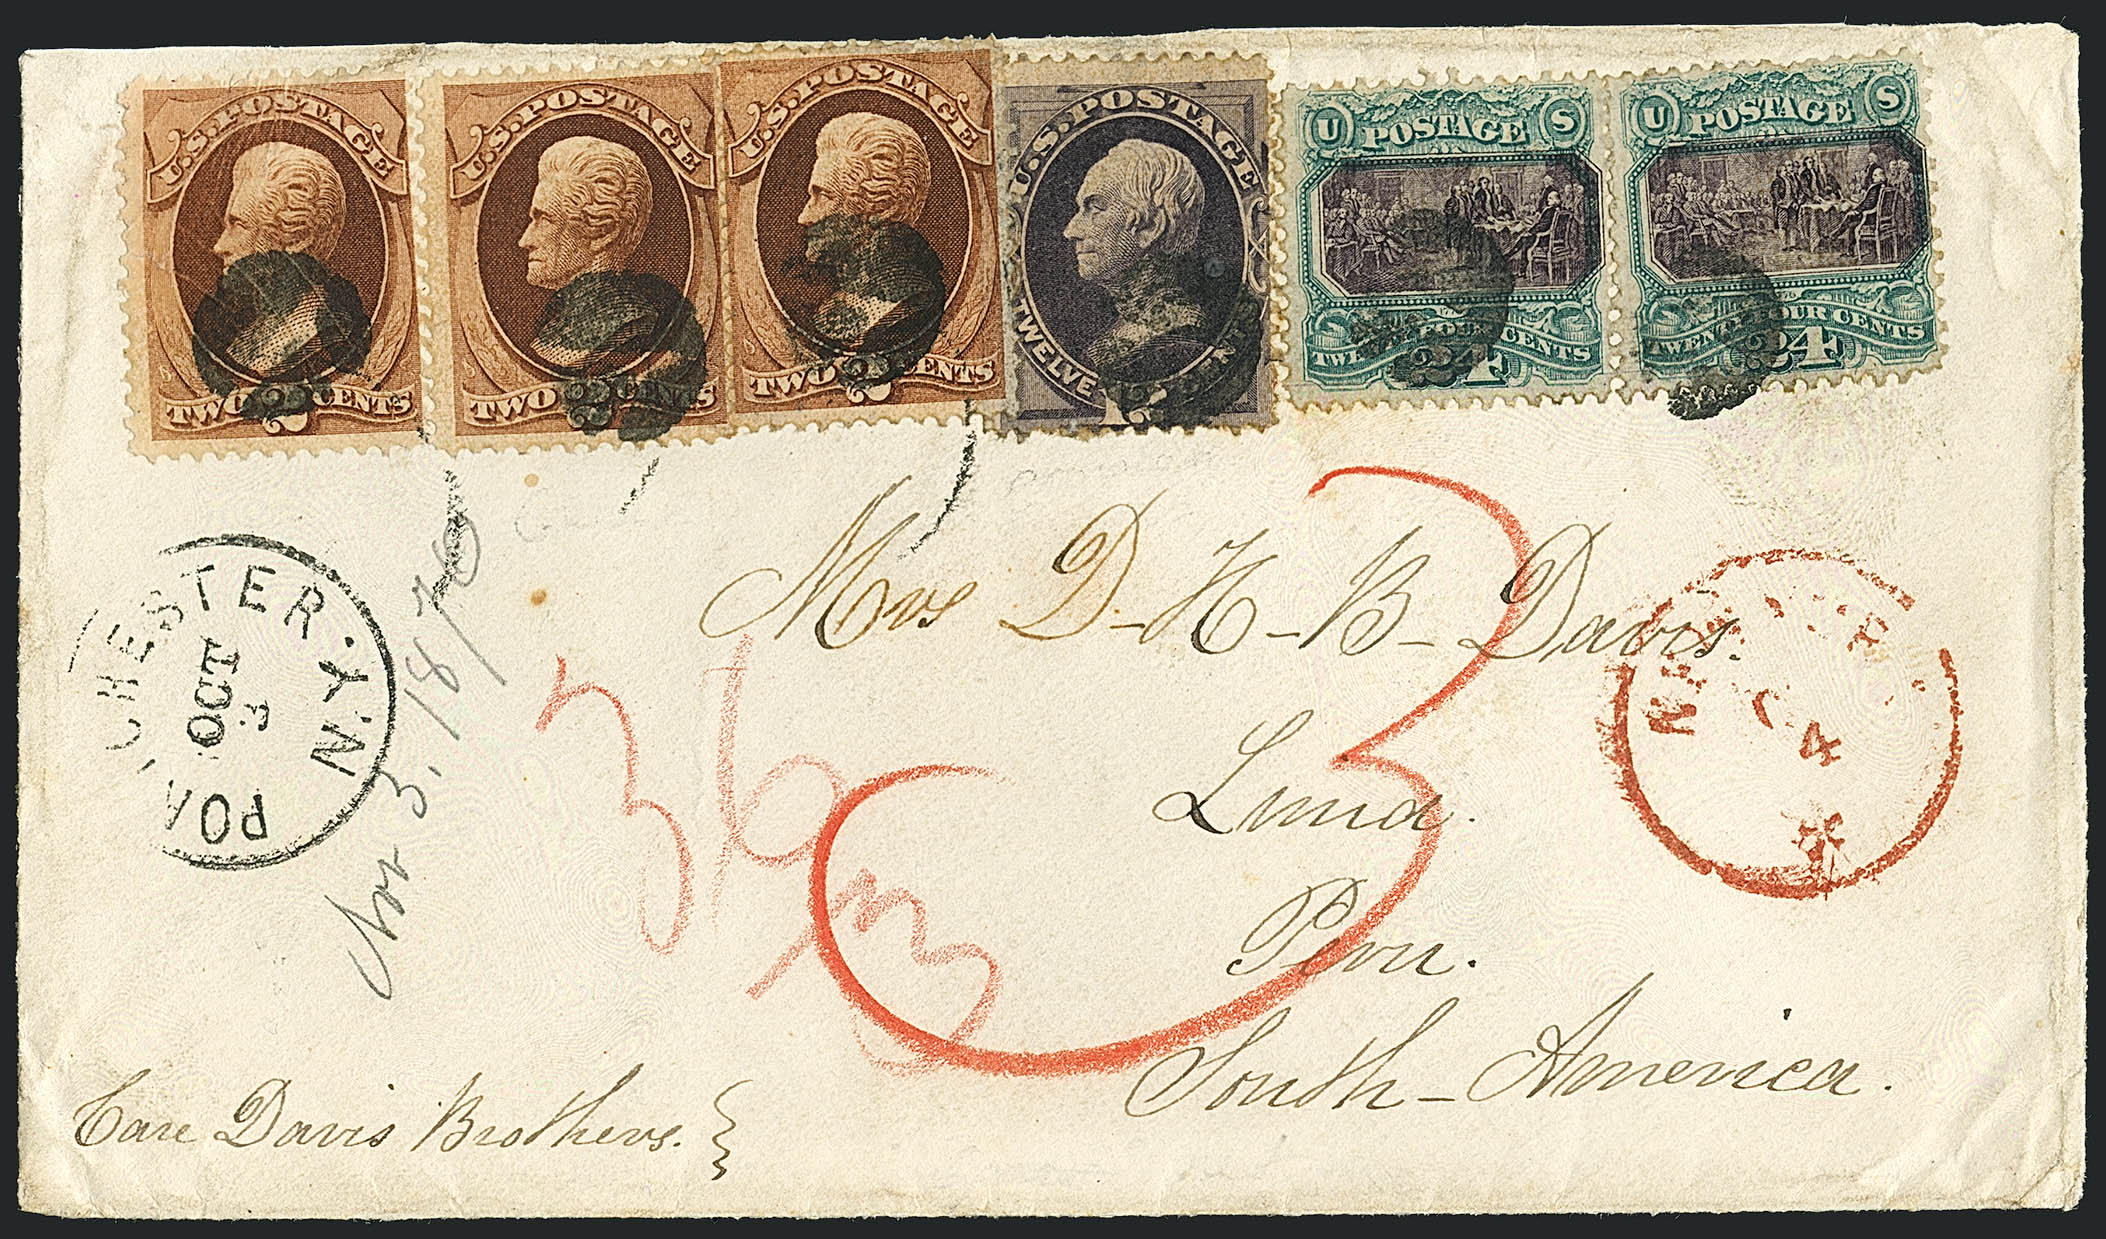 U.S. POSTAGE
TWO 2 CENTS
U.S. POSTAGE
TWO 2 CENTS
U.S. POSTAGE
TWO 2 CENTS
U.S. POSTAGE
TWELVE 12
U POSTAGE S
TWENTY FOUR CENTS
24
U POSTAGE S
TWENTY FOUR CENTS
24
CHESTER. N.Y.
OCT
3
Nov 3. 1870
Mrs D-H-B-Davis.
Lima.
Peru.
South-America.
36
3
4
Care Davis Brothers.